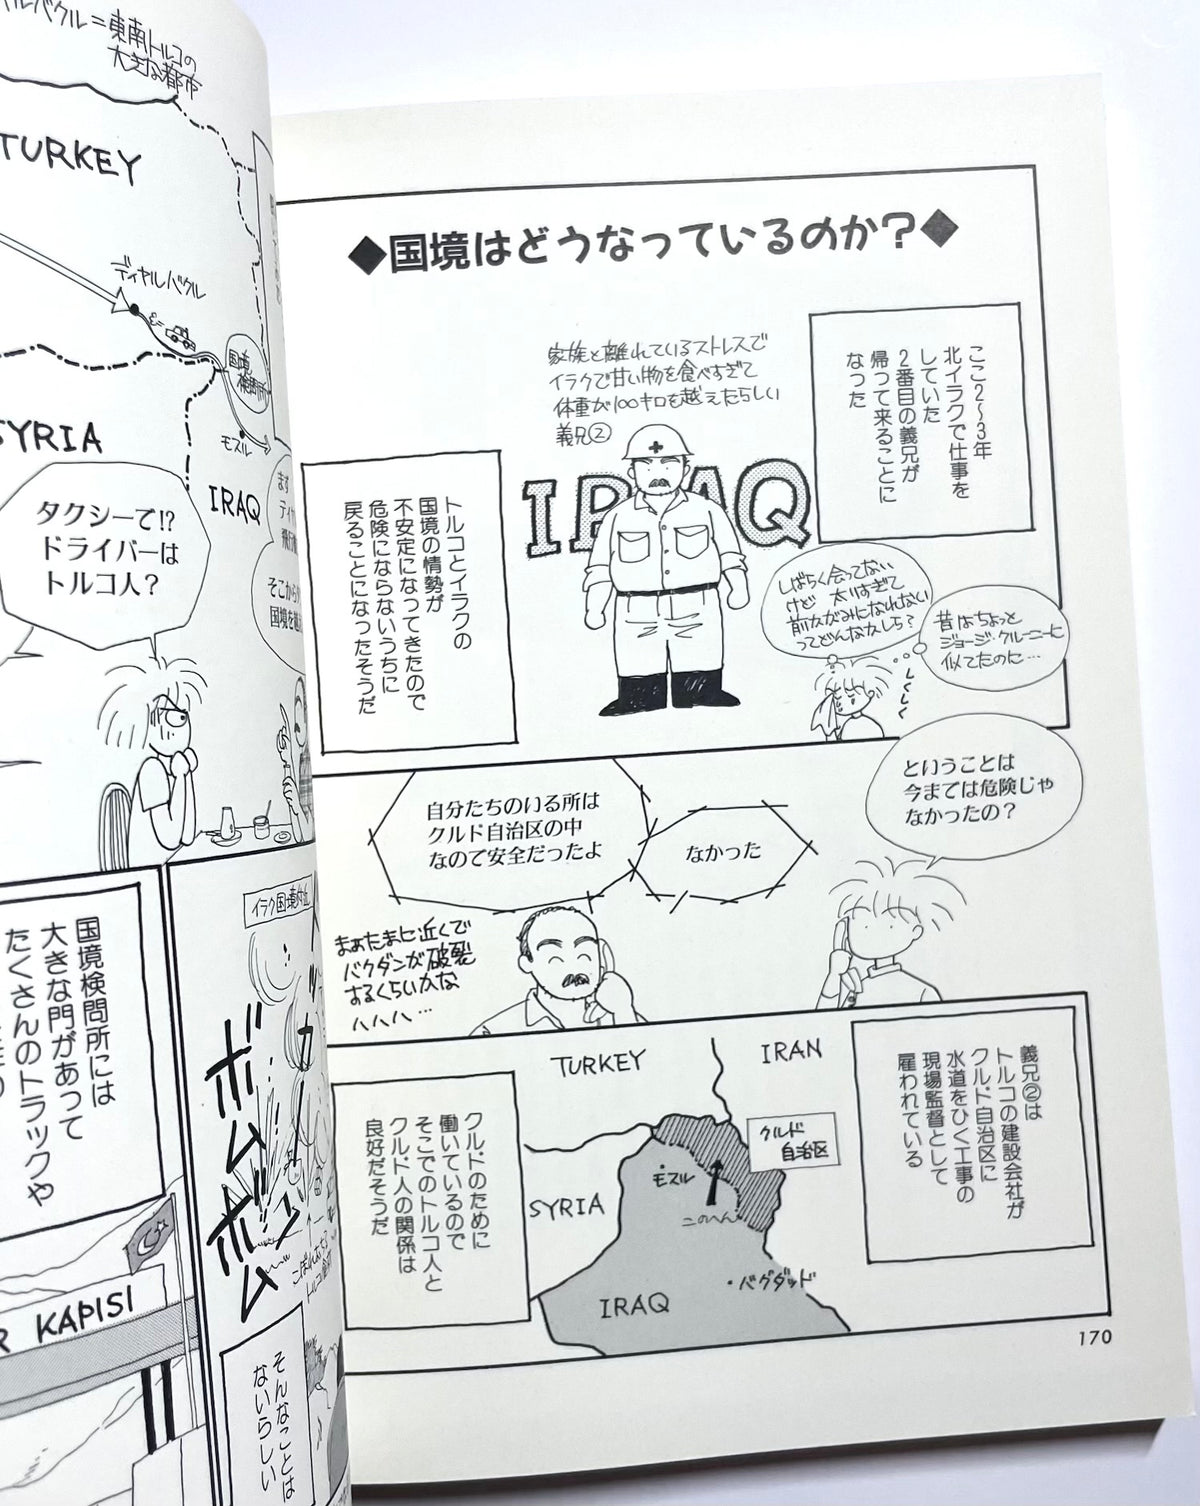 ◆国境はどうなっているのか?◆
ここ2〜3年
北イラクで仕事を
していた
2番目の義兄が
帰って来ることに
なった
家族と離れているストレスで
イラクで甘い物を食べすぎて
体重が100キロを越えたらしい
義兄②
IRAQ
トルコとイラクの
国境の情勢が
不安定になってきたので
危険にならないうちに
戻ることになったそうだ
しばらく会ってない
けど 太りすぎて
前かがみになれない
ってどんなかしら?
昔はちょっと
ジョージ・クルーニーに
似てたのに…
しくしく
ということは
今までは危険じゃ
なかったの?
なかった
自分たちのいる所は
クルド自治区の中
なので安全だったよ
まぁたまに近くで
バクダンが破裂
するくらいかな
ハハハ…
義兄②は
トルコの建設会社が
クルド自治区に
水道をひく工事の
現場監督として
雇われている
TURKEY
IRAN
クルド
自治区
モスル
このへん
SYRIA
・バグダッド
IRAQ
クルドのために
働いているので
そこでのトルコ人と
クルド人の関係は
良好だそうだ
170
ルバクル=東南トルコの
大きな都市
TURKEY
ディヤルバクル
国境
検問所
モスル
SYRIA
IRAQ
まず
そこから
国境を
タクシーで!?
ドライバーは
トルコ人?
イラク国境付近
ボムボム
国境検問所には
大きな門があって
たくさんのトラックや
R KAPISI
そんなことは
ないらしい